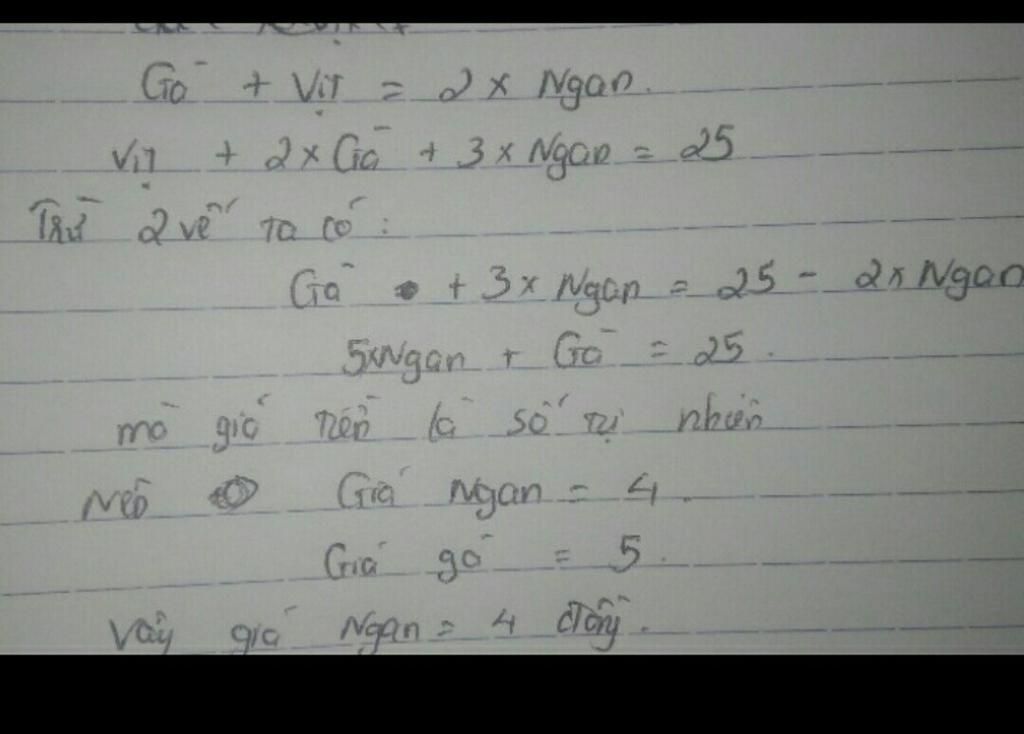 Gà + Vịt = 2 x Ngan.
Vịt + 2 x Gà + 3 x Ngan = 25
Trừ 2 vế ta có :
Gà + 3 x Ngan = 25 - 2 x Ngan
5xNgan + Gà = 25.
mà giá tiền là số tự nhiên
Nên Giá Ngan = 4.
Giá gà = 5.
Vậy giá Ngan = 4 đồng.